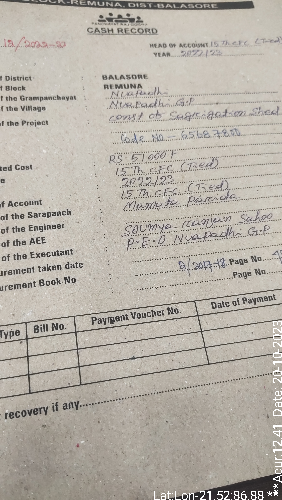 BLOCK-REMUNA, DIST-BALASORE
CASH RECORD
HEAD OF ACCOUNT 15th CFC (Tied)
YEAR 2022/23
of District BALASORE
of Block REMUNA
of the Grampanchayat Nuapadhi
of the Village Nuapadhi G.P
of the Project const of Segregation Shed
Code No - 65687855
ted Cost RS 51000/-
15 Th CFC (Tied)
2022/23
of Account 15 Th CFC (Tied)
of the Sarapanch Mamata Parida
of the Engineer
of the AEE Soumya ranjan Sahoo
of the Executant P.E.O Nuapadhi G.P
urement taken date
urement Book No Page No.
Page No.
Type Bill No. Payment Voucher No. Date of Payment
recovery if any
Lat:Lon-21.52:86.88 ***Acur:12.41 Date: 20-10-2023